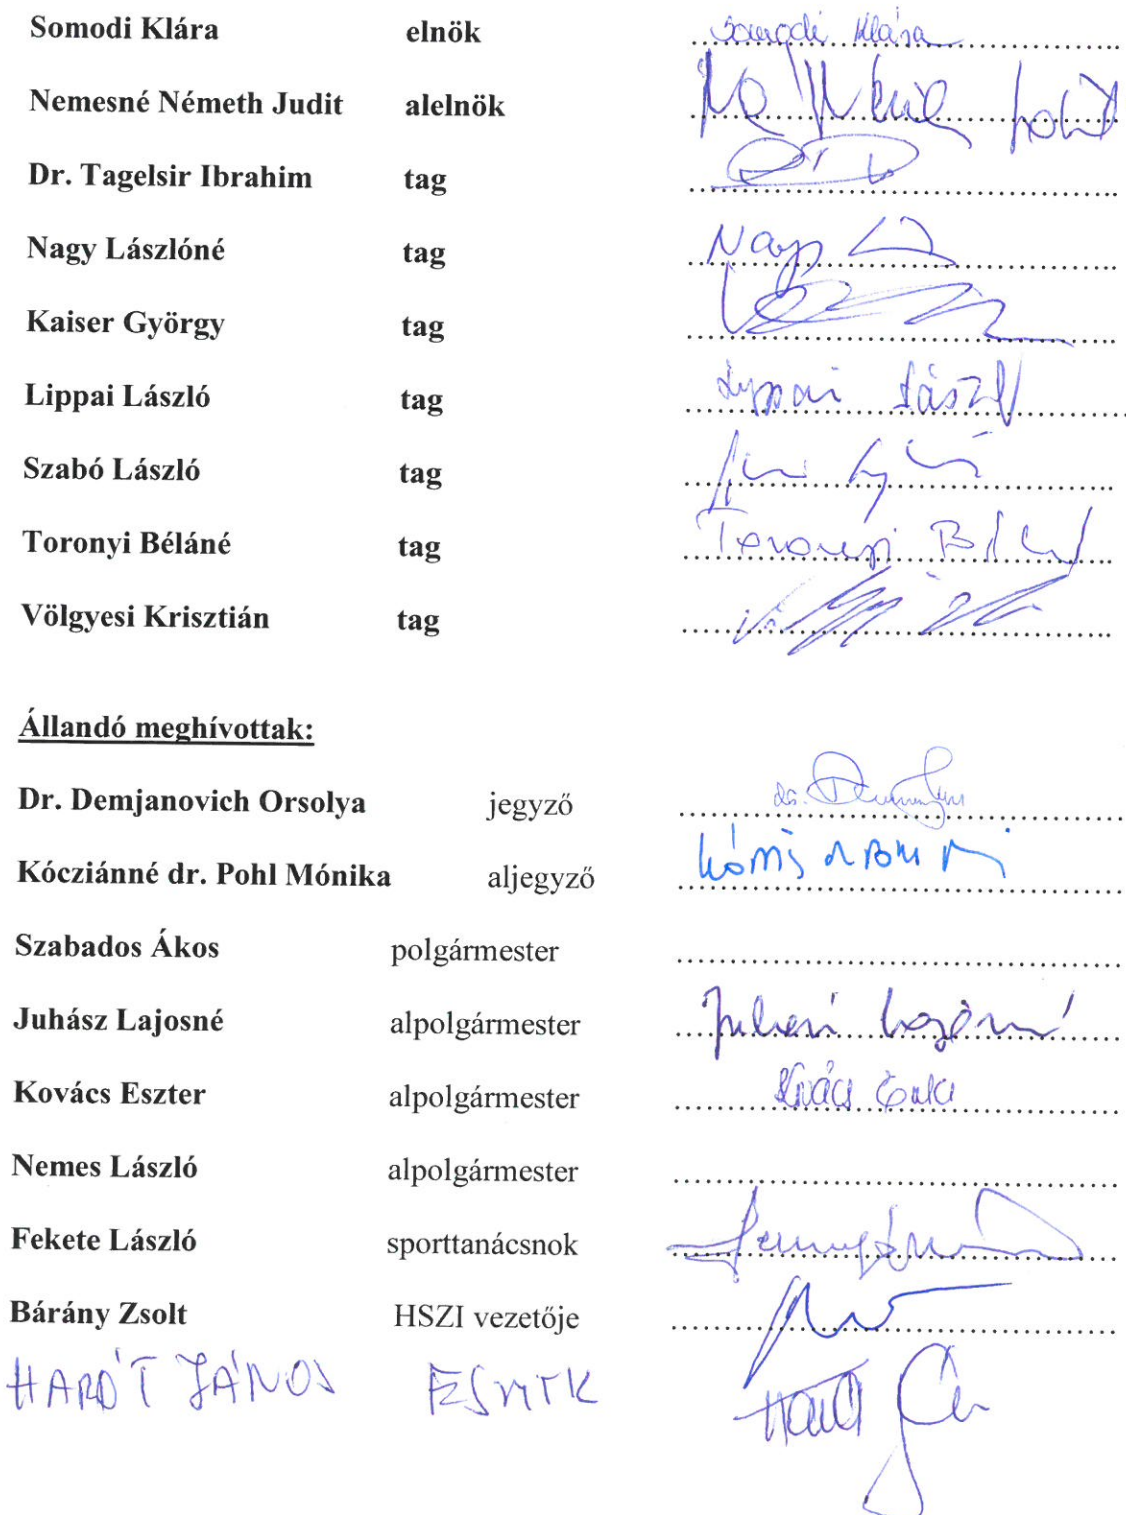 Somodi Klára elnök Somodi Klára
Nemesné Németh Judit alelnök
Dr. Tagelsir Ibrahim tag
Nagy Lászlóné tag Nagy
Kaiser György tag
Lippai László tag Lippai László
Szabó László tag
Toronyi Béláné tag Toronyi Béláné
Völgyesi Krisztián tag
Állandó meghívottak:
Dr. Demjanovich Orsolya jegyző dr.
Kócziánné dr. Pohl Mónika aljegyző
Szabados Ákos polgármester
Juhász Lajosné alpolgármester Juhász Lajosné
Kovács Eszter alpolgármester Kovács Eszter
Nemes László alpolgármester
Fekete László sporttanácsnok
Bárány Zsolt HSZI vezetője
HARÓT JÁNOS ESMTK